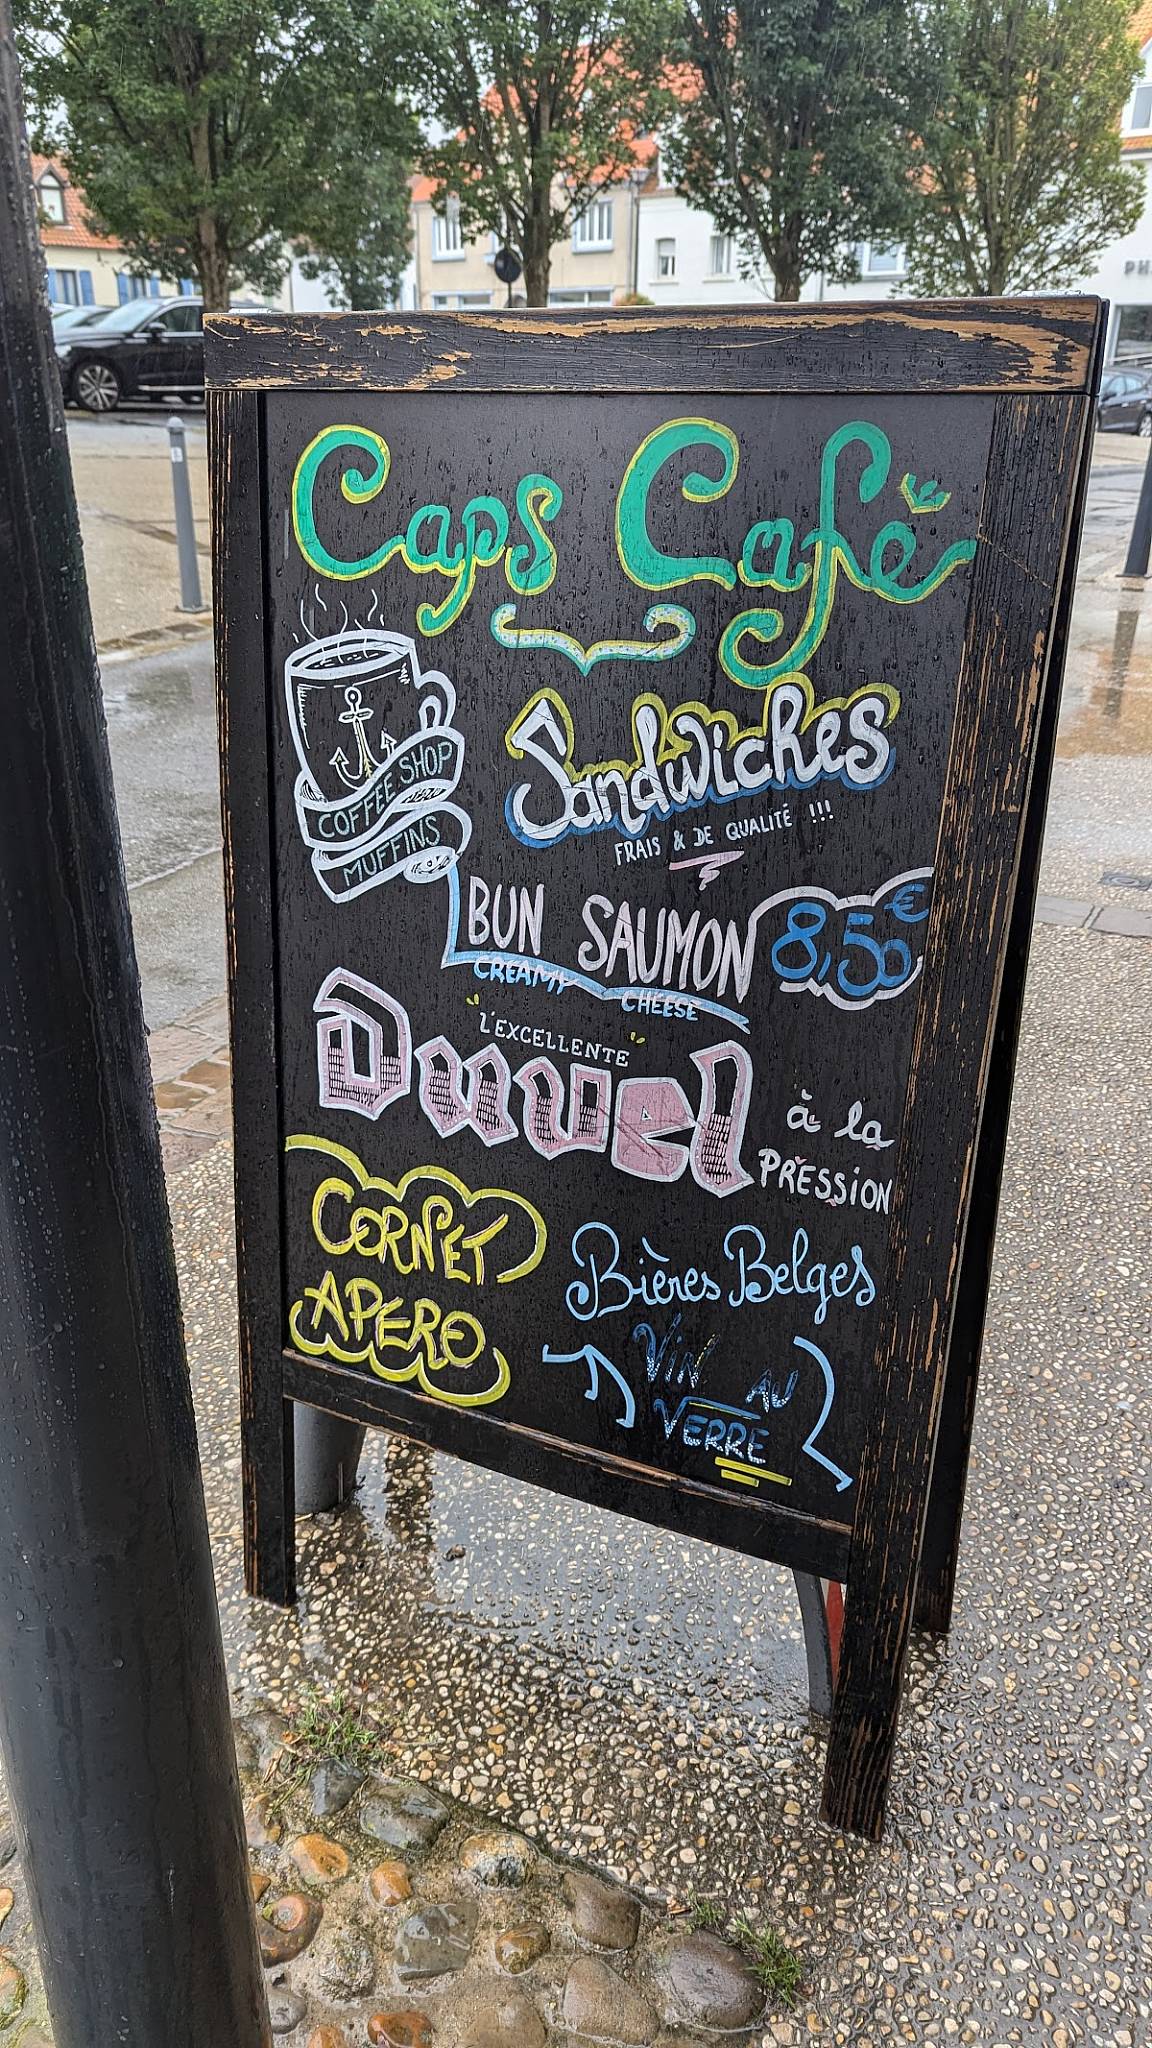 Caps Café
COFFEE SHOP
MUFFINS
Sandwiches
FRAIS & DE QUALITÉ !!!
BUN SAUMON 8,50€
CREAMY CHEESE
"L'EXCELLENTE"
Duvel à la
PRESSION
CORNET
APERO
Bières Belges
VIN AU
VERRE
PH